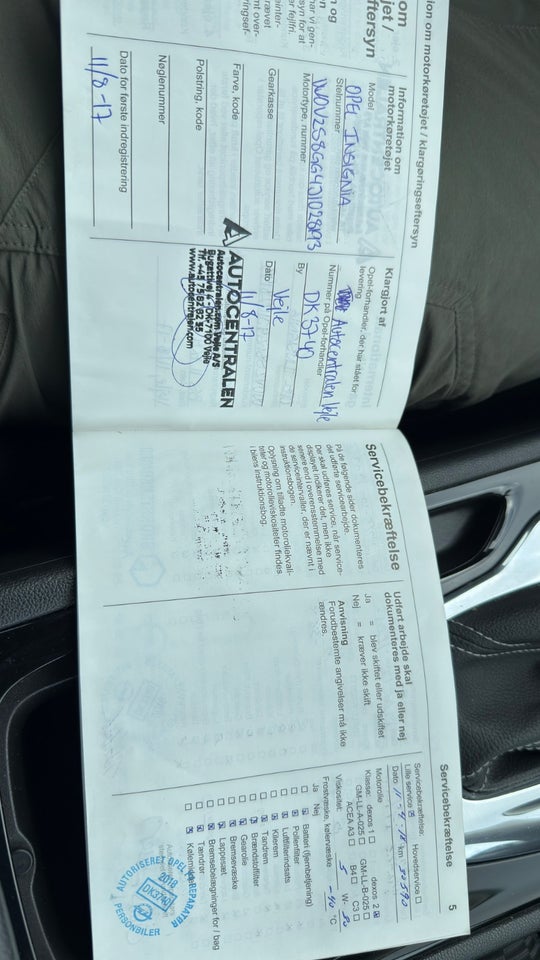 ion om motorkøretøjet / klargøringseftersyn
om
jet /
eftersyn
Information om
motorkøretøjet
Model
OPEL INSIGNIA
Stelnummer
Motortype, nummer
Gearkasse
Farve, kode
Polstring, kode
Nøglenummer
Dato for første indregistrering
11/8-17
Klargjort af
Opel-forhandler, der har stået for
levering
Autocentralen Vejle
Nummer på Opel-forhandler
DK3740
By
Vejle
Dato
11/8-17
AUTOCENTRALEN
Autocentralen.com Vejle A/S
DK-7100 Vejle
Tlf. +45 7582 82 55
www.autocentralen.com
Servicebekræftelse
På de følgende sider dokumenteres
det udførte servicearbejde.
Der skal udføres service, når service-
displayet indikerer det, men ikke
senere end i overensstemmelse med
de serviceintervaller, der er nævnt i
instruktionsbogen.
Oplysning om tilladte motoroliekvali-
teter og motorolieviskositeter findes
i bilens instruktionsbog.
Udført arbejde skal
dokumenteres med ja eller nej
Ja = blev skiftet eller udskiftet
Nej = kræver ikke skift
Anvisning
Forudbestemte angivelser må ikke
ændres.
Servicebekræftelse 5
Servicebekræftelse: Hovedservice
Lille service
Dato km
Motorolie
Klasse: dexos 1 dexos 2
GM-LL-A-025 GM-LL-B-025
ACEA A3 B4 C3
Viskositet: 5 W-30
Frostvæske, kølervæske -40 °C
Ja Nej
Batteri (fjernbetjening)
Pollenfilter
Luftfilterindsats
Kilerem
Tandrem
Brændstoffilter
Gearolie
Bremsevæske
Lappesæt
Bremsebelægninger for / bag
Tændrør
Kølemiddel
AUTORISERET OPEL REPARATØR
2018
DK3740
PERSONBILER